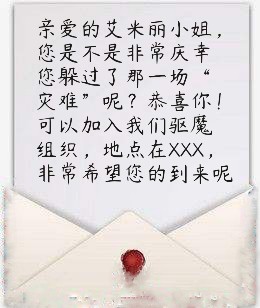 亲爱的艾米丽小姐，
您是不是非常庆幸
您躲过了那一场“
灾难”呢？恭喜你！
可以加入我们驱魔
组织，地点在XXX，
非常希望您的到来呢